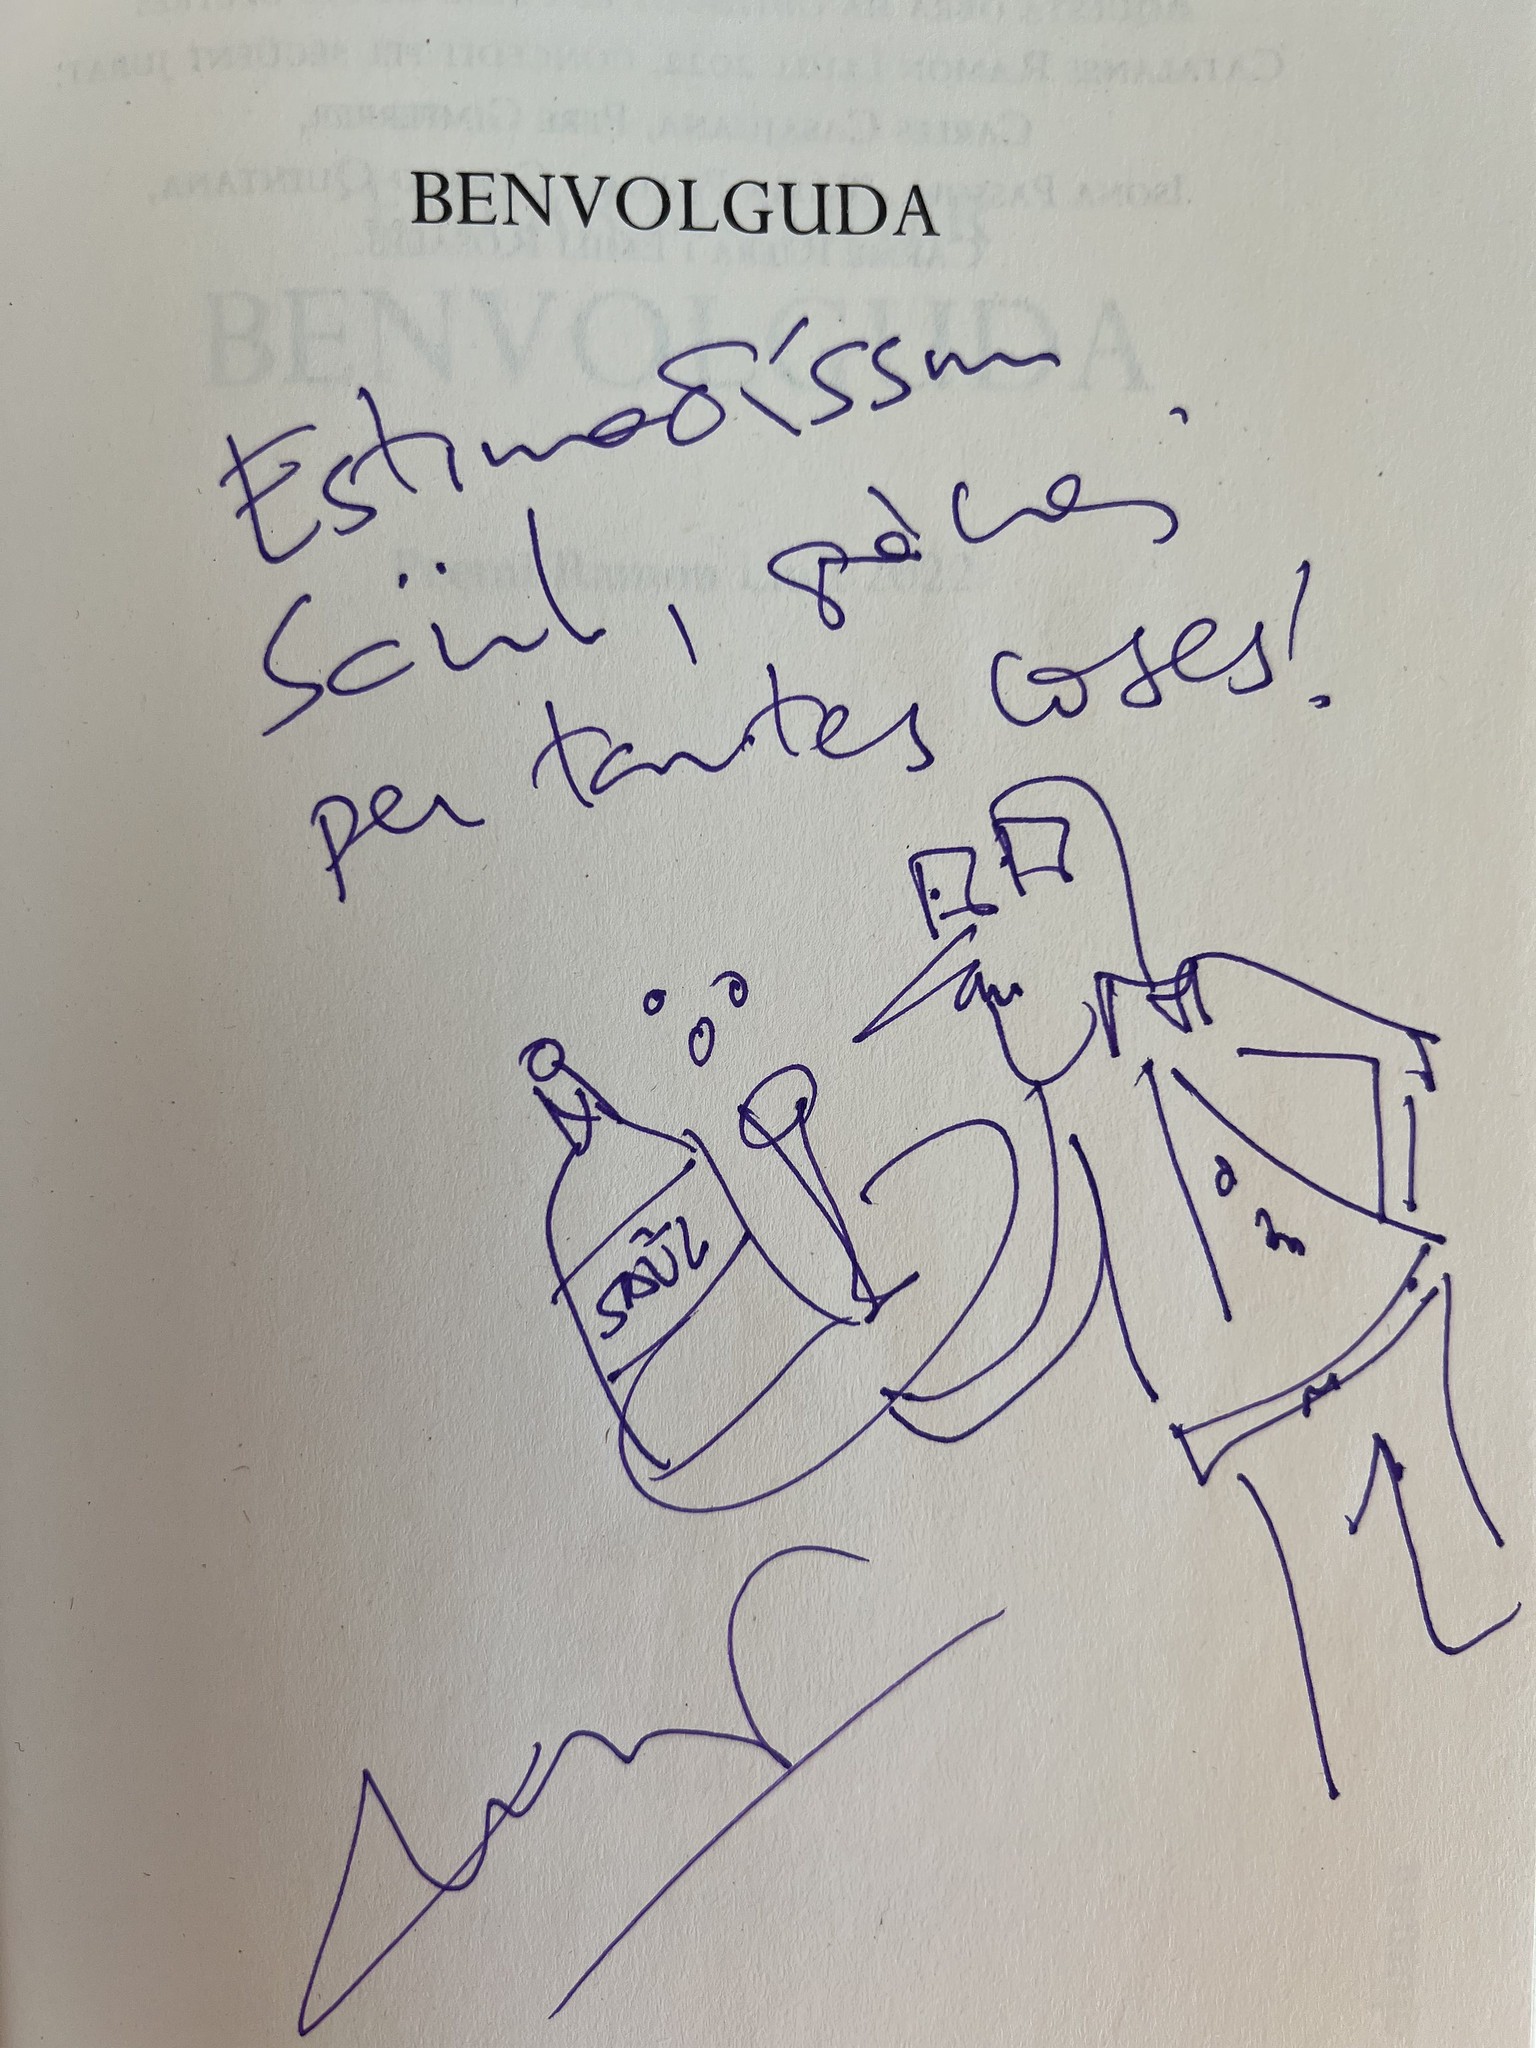 BENVOLGUDA
Estimadíssim
Saül, gràcies
per tantes coses!
SAÜL